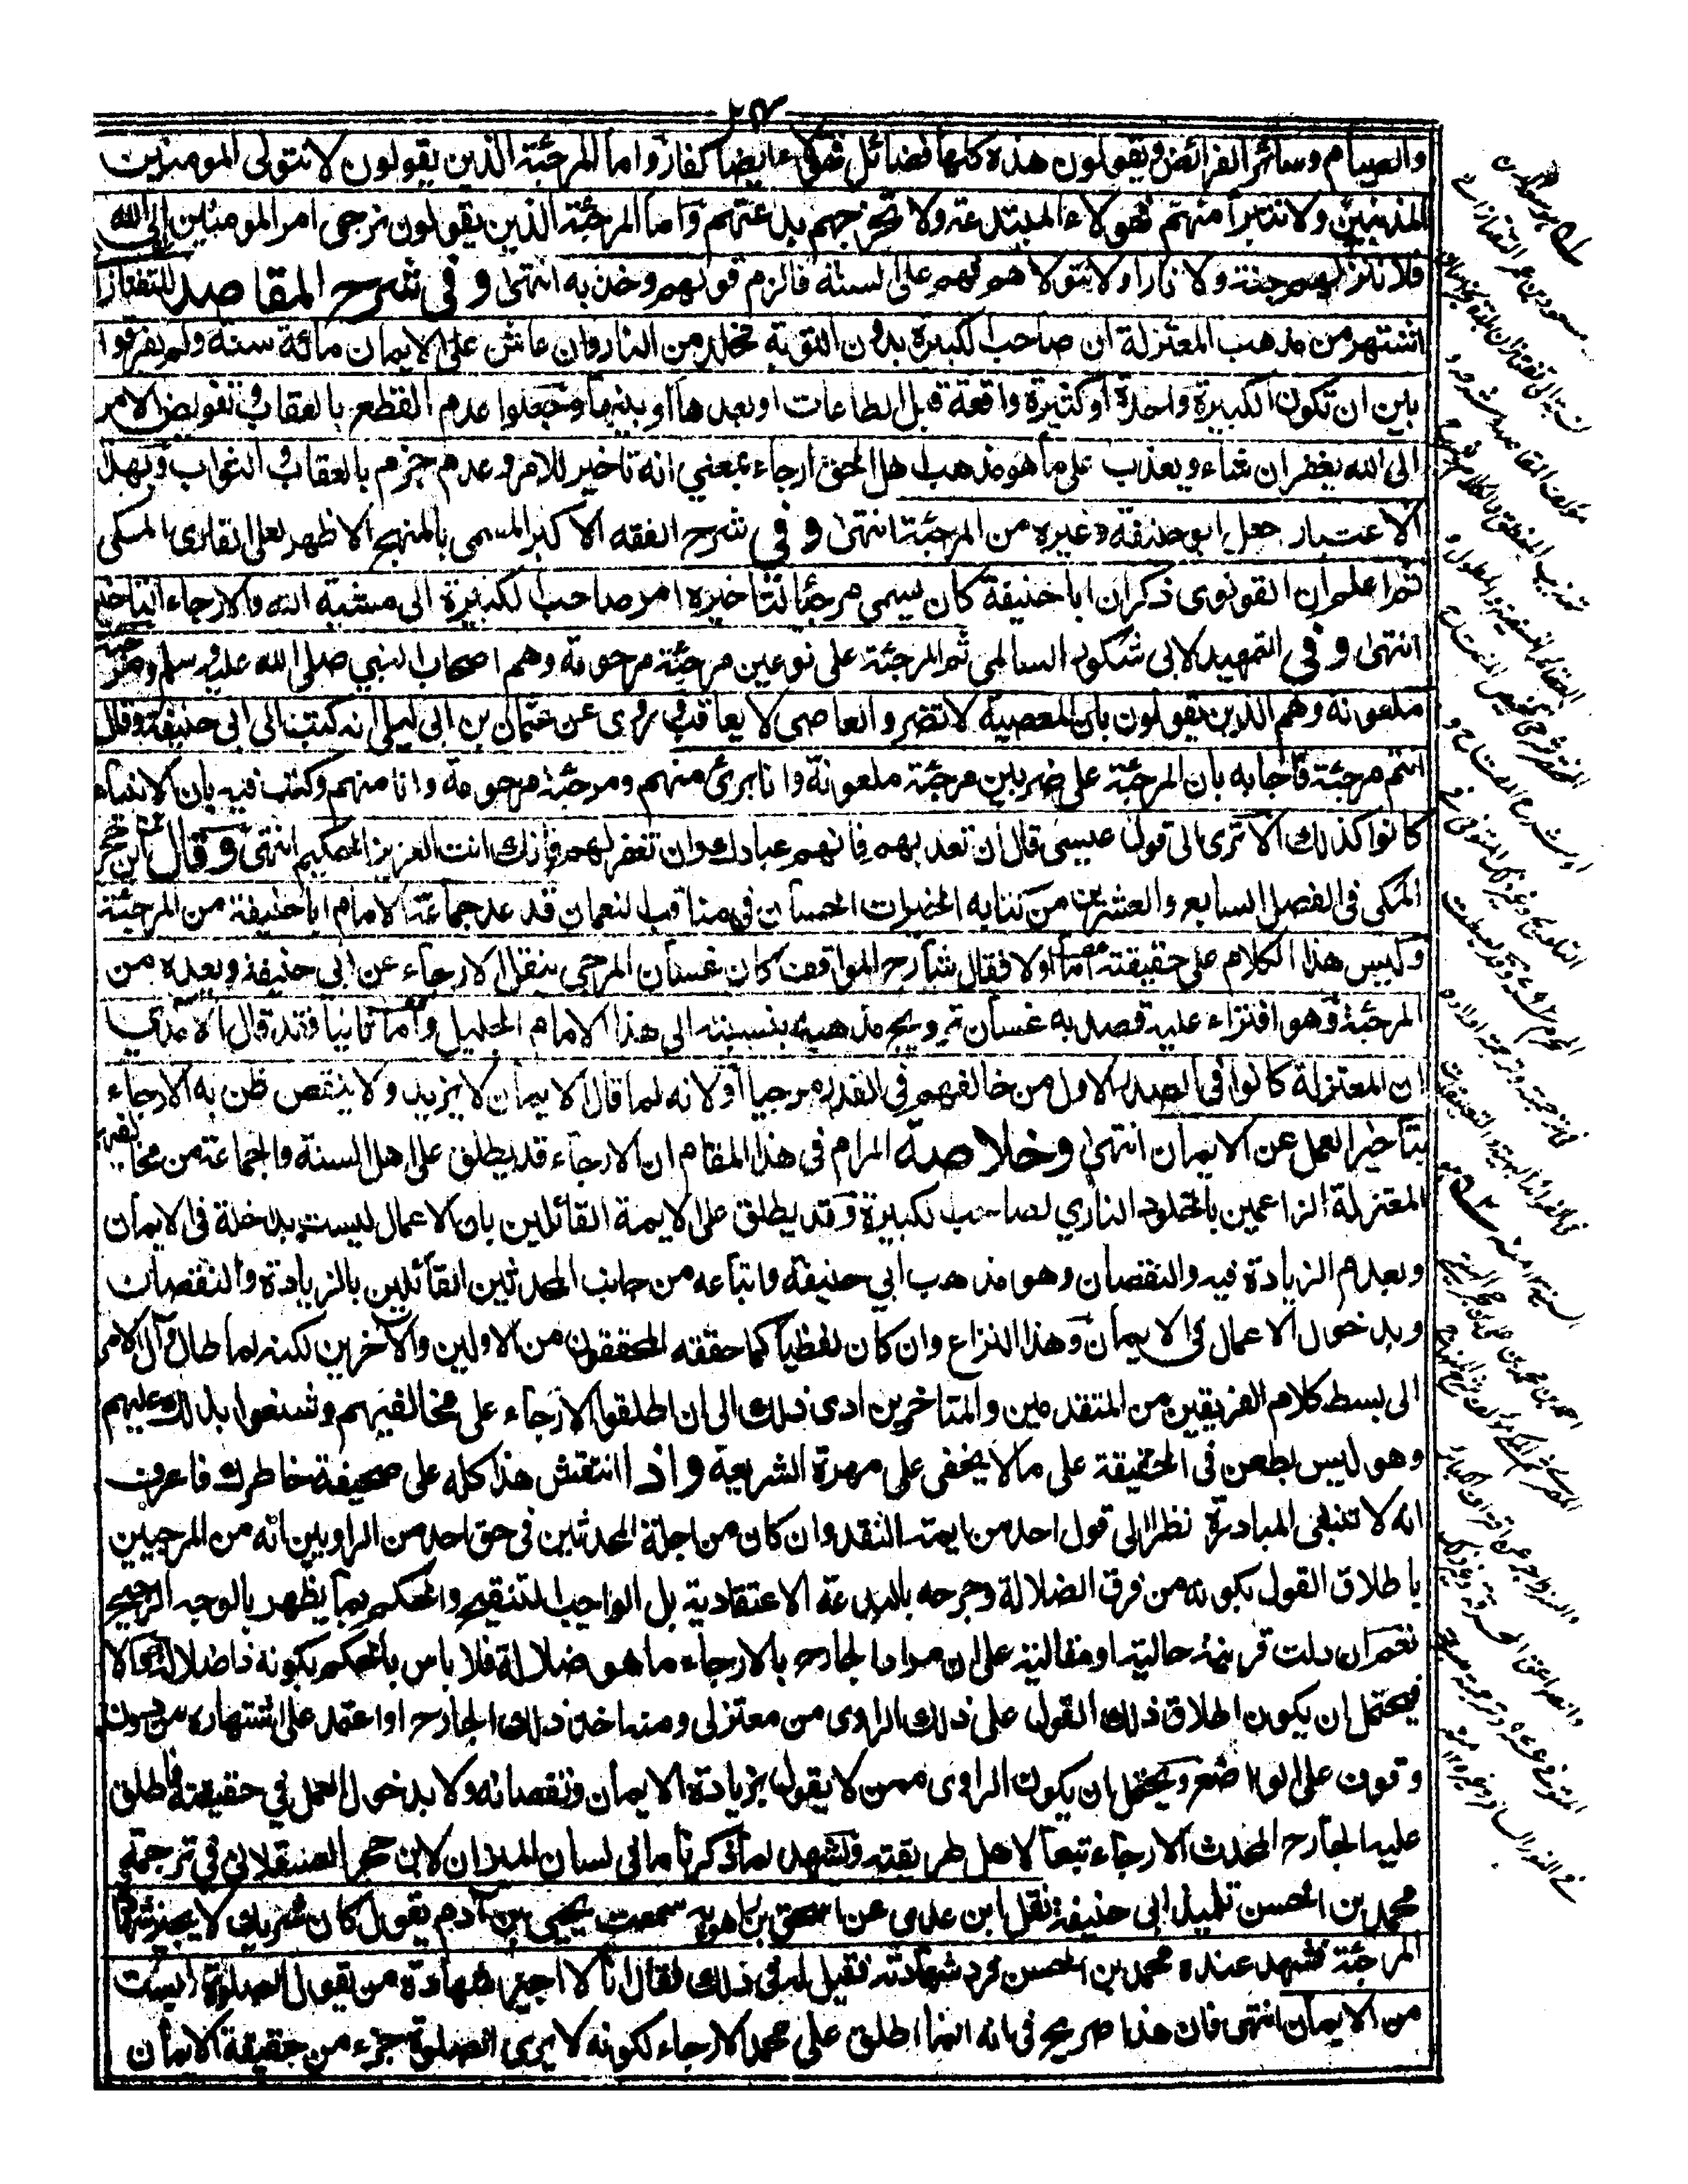 ٢٤
والصيام وسائر الفرائض ويقولون هذه كلها فضائل فهؤلاء ايضا كفار واما المرجئة الذين يقولون لا نتولى المومنين
المذنبين ولا نتبرأ منهم فهؤلاء المبتدعة ولا تخرجهم بدعتهم واما المرجئة الذين يقولون نرجى امر المومنين الى الله
فلا ننزلهم جنة ولا نارا ولا نتولاهم فهم على السنة فالزم قولهم وخذ به انتهى وفي شرح المقاصد للتفتازانى
اشتهر من مذهب المعتزلة ان صاحب الكبيرة بدون التوبة مخلد من النار وان عاش على الايمان مائة سنة ولم يفرقوا
بين ان تكون الكبيرة واحدة او كثيرة واقعة قبل الطاعات او بعدها او بينها وجعلوا عدم القطع بالعقاب وتفويض الامر
الى الله يغفر ان شاء ويعذب على ما هو مذهب اهل الحق ارجاء بمعنى انه تاخير للامر وعدم جزم بالعقاب والثواب وبهذا
الاعتبار جعل ابو حنيفة وغيره من المرجئة انتهى وفي شرح الفقه الاكبر المسمى بالمنهج الاظهر لعلى القارى المكى
ثم اعلم ان القونوى ذكر ان ابا حنيفة كان يسمى مرجئا لتاخيره امر صاحب الكبيرة الى مشية الله والارجاء التاخير
انتهى وفي التمهيد لابى شكور السالمى ثم المرجئة على نوعين مرجئة مرحومة وهم اصحاب النبي صلى الله عليه وسلم ومرجئة
ملعونة وهم الذين يقولون بان المعصية لا تضر والعاصى لا يعاقب وروى عن عثمان بن ابى ليلى انه كتب الى ابى حنيفة وقال
انتم مرجئة فاجابه بان المرجئة على ضربين مرجئة ملعونة وانا برئ منهم ومرجئة مرحومة وانا منهم وكتب فيه بان الانبياء
كانوا كذلك الا ترى الى قول عيسى قال ان تعذبهم فانهم عبادك وان تغفر لهم فانك انت العزيز الحكيم انتهى وقال ابن حجر
المكى في الفصل السابع والعشرين من كتابه الخيرات الحسان في مناقب النعمان قد عد جماعة الامام ابا حنيفة من المرجئة
وليس هذا الكلام على حقيقته اما اولا فقال شارح المواقف كان غسان المرجى ينقل الارجاء عن ابى حنيفة ويعده من
المرجئة وهو افتراء عليه قصد به غسان ترويج مذهبه بنسبته الى هذا الامام الجليل واما ثانيا فقد قال الآمدى
ان المعتزلة كانوا في الصدر الاول من خالفهم في القدر مرجيا او لانه لما قال الايمان لا يزيد ولا ينقص ظن به الارجاء
بتاخير العمل عن الايمان انتهى وخلاصة المرام في هذا المقام ان الارجاء قد يطلق على اهل السنة والجماعة من مخالفيهم
المعتزلة الزاعمين بالخلود النارى لصاحب الكبيرة وقد يطلق على الايمة القائلين بان الاعمال ليست بداخلة في الايمان
وبعدم الزيادة فيه والنقصان وهو مذهب ابى حنيفة واتباعه من جانب المحدثين القائلين بالزيادة والنقصان
وبدخول الاعمال في الايمان وهذا النزاع وان كان لفظيا كما حققه المحققون من الاولين والآخرين لكنه لما طال وآل الامر
الى بسط كلام الفريقين من المتقدمين والمتاخرين ادى ذلك الى ان اطلقوا الارجاء على مخالفيهم وشنعوا بذلك عليهم
وهو ليس بطعن في الحقيقة على ما لا يخفى على مهرة الشريعة واذا انتقش هذا كله على صحيفة خاطرك فاعرف
انه لا تنبغى المبادرة نظرا الى قول احد من ايمة النقد وان كان من اجلة المحدثين في حق احد من الراويين انه من المرجيين
باطلاق القول بكونه من فرق الضلالة وجرحه بالبدعة الاعتقادية بل الواجب التنقيح والحكم بما يظهر بالوجه الرجيح
نعم ان دلت قرينة حالية او مقالية على ان مراد الجارح بالارجاء ما هو ضلالة فلا باس بالحكم بكونه ذا ضلالة والا
فيحتمل ان يكون اطلاق ذلك القول على ذلك الراوى من معتزلى ومنه اخذ ذلك الجارح او اعتمد على اشتهاره من دون
وقوف على الواضع ويحتمل ان يكون الراوى ممن لا يقول بزيادة الايمان ونقصانه ولا بدخول العمل في حقيقته فاطلق
عليه الجارح المحدث الارجاء تبعا لاهل طريقته ويشهد لما ذكرنا ما في لسان الميزان لابن حجر العسقلانى في ترجمة
محمد بن الحسن تلميذ ابى حنيفة نقل ابن عدى عن اسحق بن راهويه سمعت يحيى بن آدم يقول كان شريك لا يجيز شهادة
المرجئة فشهد عنده محمد بن الحسن فرد شهادته فقيل له في ذلك فقال انا لا اجيز شهادة من يقول الصلوة ليست
من الايمان انتهى فان هذا صريح في انه انما اطلق على محمد الارجاء لكونه لا يرى الصلوة جزء من حقيقة الايمان